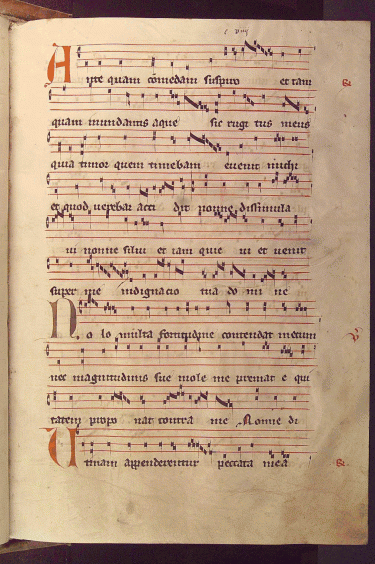 Ante quam comedam suspiro et tam
quam inundantis aque sic rugi tus meus
quia timor quem timebam evenit michi
et quod verebar acci dit nonne dissimula
vi nonne silui et iam quie vi et venit
super me indignacio tua do mi ne
N o lo multa fortitudine contendat mecum
nec magnitudinis sue mole me premat e qui
tatem propo nat contra me Nonne di
Utinam appenderentur peccata mea